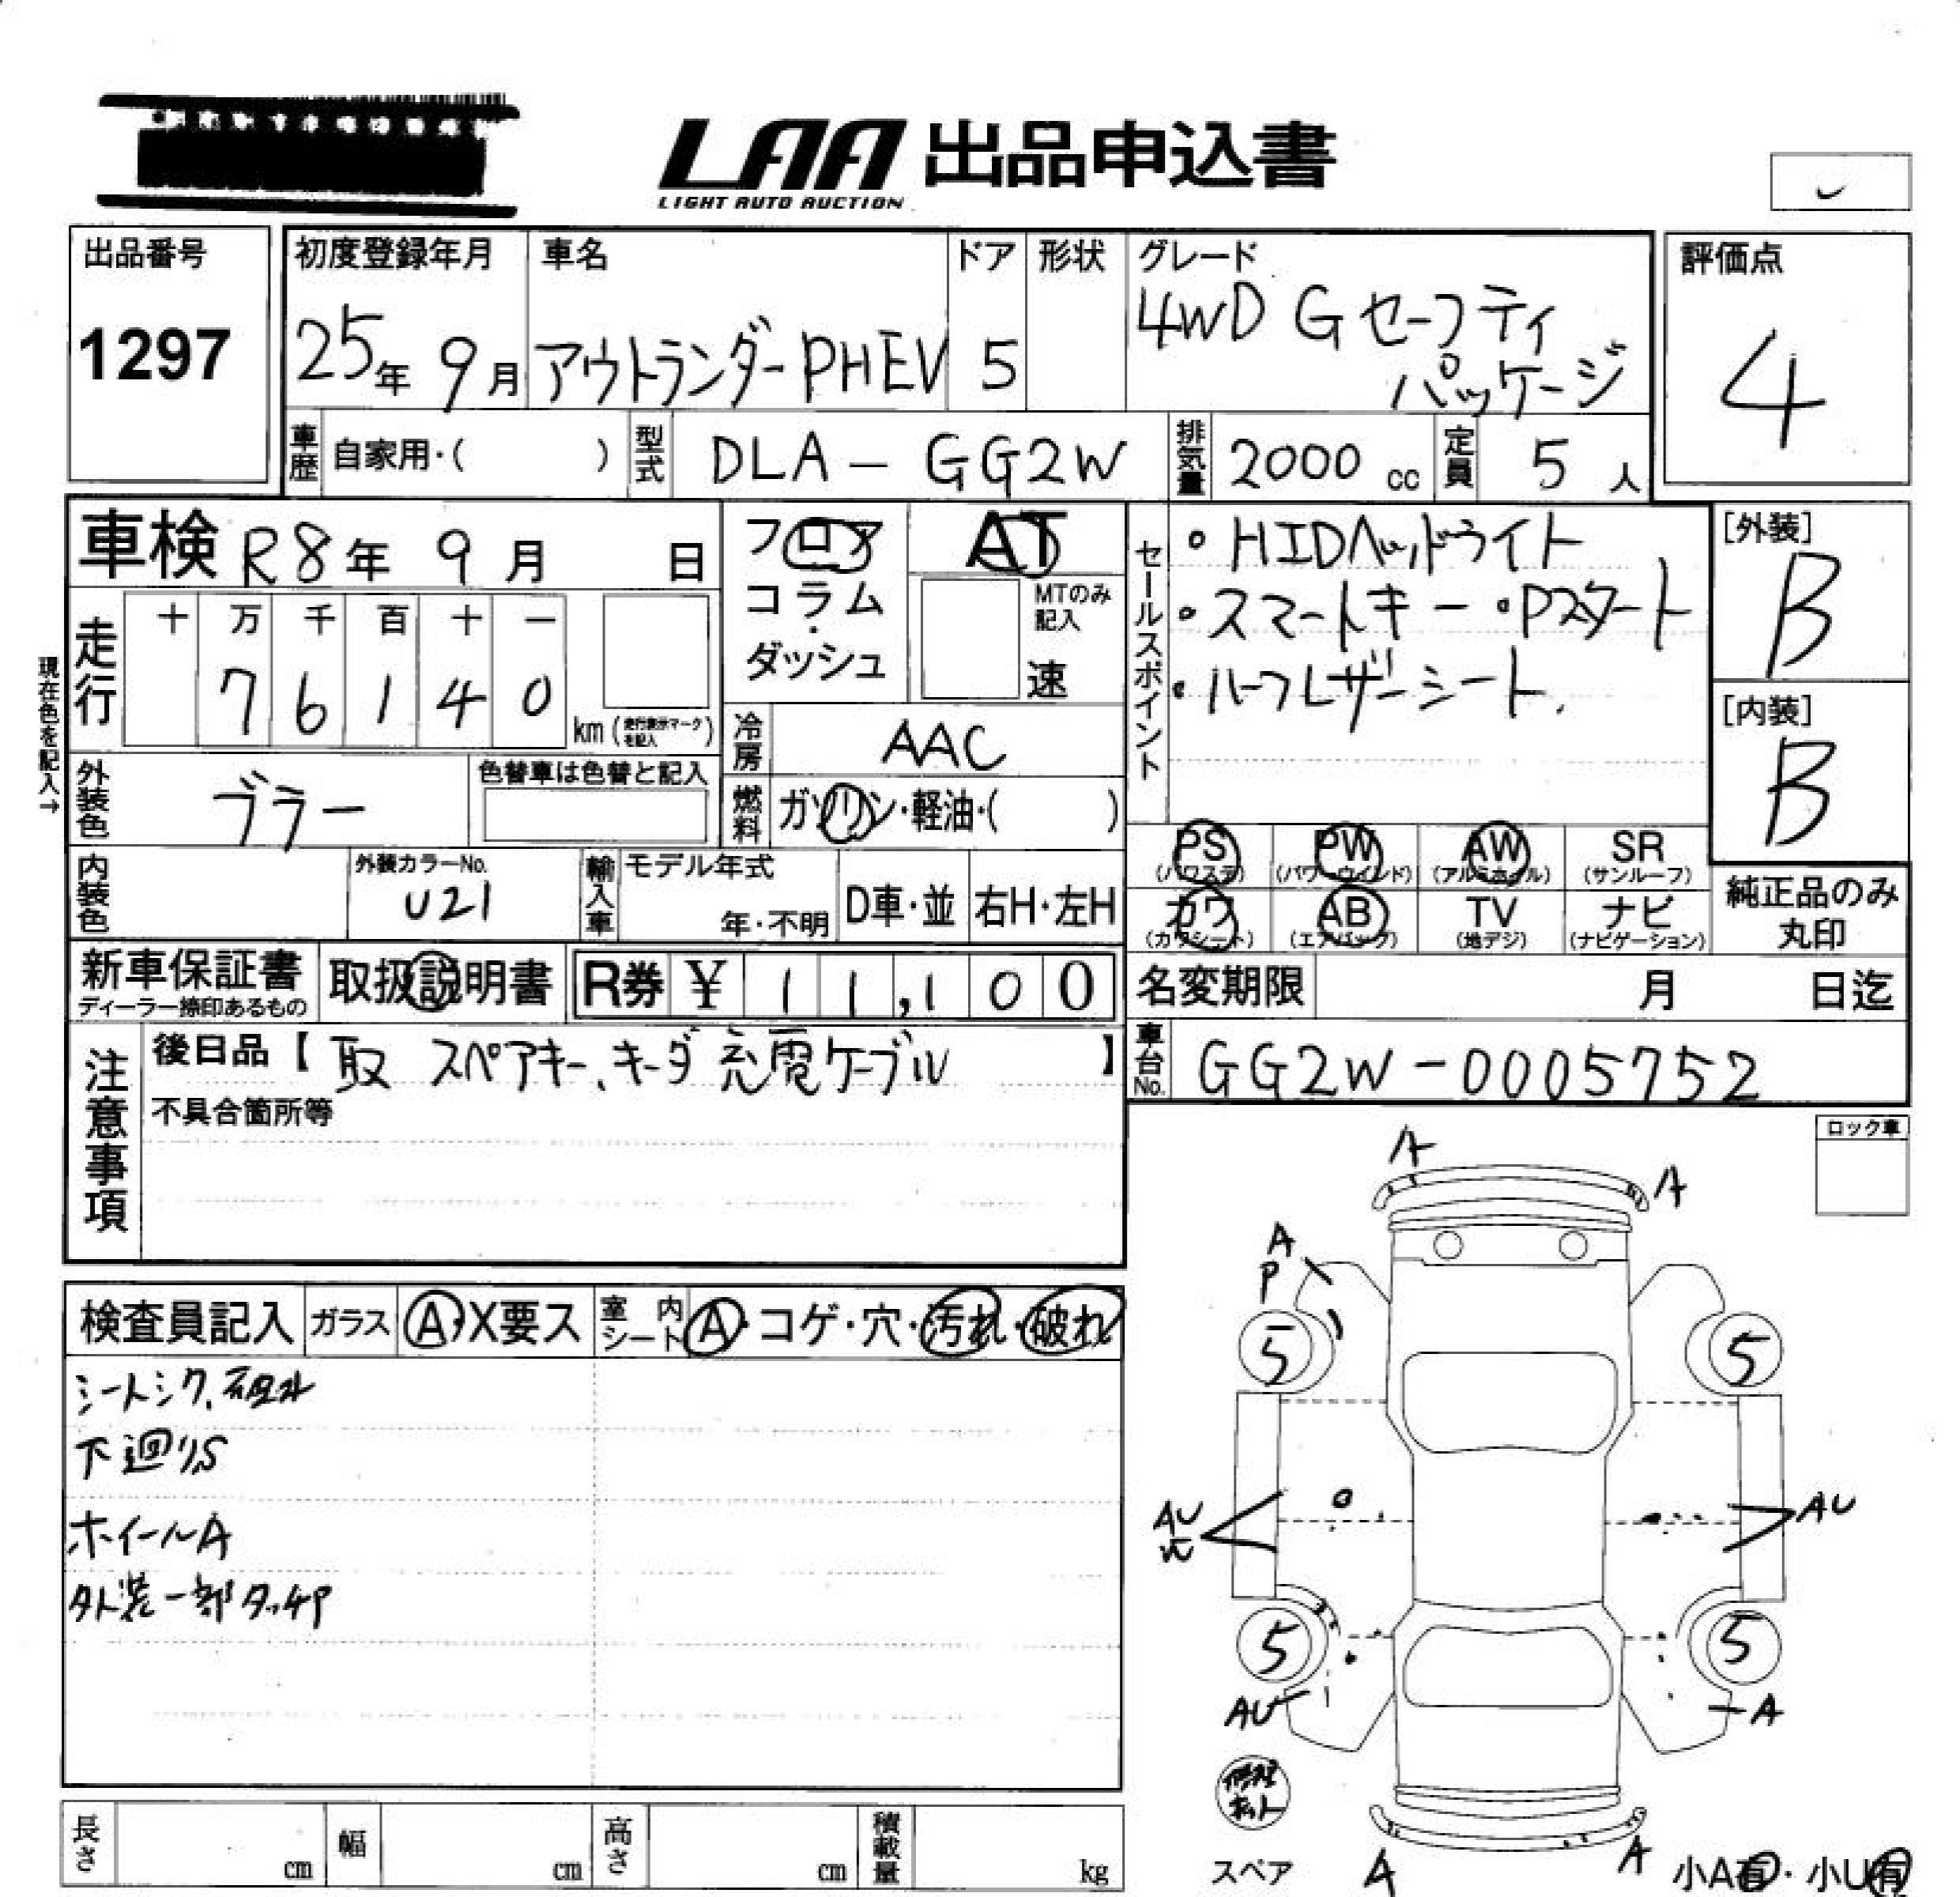 LAA 出品申込書
LIGHT AUTO AUCTION
出品番号
1297
初度登録年月
25年 9月
車名
アウトランダーPHEV
ドア
5
形状
グレード
4WD G セーフティ
パッケージ
評価点
4
車歴 自家用・( )
型式 DLA-GG2W
排気量 2000 cc
定員 5 人
車検 R8年 9月 日
フロア
コラム・
ダッシュ
AT
MTのみ
記入
速
セールスポイント
・HIDヘッドライト
・スマートキー ・Pスタート
・ハーフレザーシート.
[外装]
B
[内装]
B
現在色を記入→
走行
十 万 千 百 十 一
7 6 1 4 0
km (走行表示マークを記入)
冷房 AAC
外装色 ブラー
色替車は色替と記入
燃料 ガソリン・軽油・( )
内装色
外装カラーNo.
U21
輸入車
モデル年式
年・不明
D車・並
右H・左H
PS (パワステ)
PW (パワーウィンド)
AW (アルミホイル)
SR (サンルーフ)
カワ (カワシート)
AB (エアバック)
TV (地デジ)
ナビ (ナビゲーション)
純正品のみ
丸印
新車保証書
ディーラー捺印あるもの
取扱説明書
R券 ¥ 1 1,1 0 0
名変期限 月 日迄
注意事項
後日品【 取 スペアキー、キーダ 充電ケーブル 】
不具合箇所等
車台No. GG2W-0005752
ロック車
検査員記入
ガラス A・X要ス
室内シート A・コゲ・穴・汚れ・破れ
下廻りS
ホイールA
外装一部タッチP
A
A
A
P
5
5
AU
AU
5
5
AU
A
修理
キット
スペア
A
A
小A有・小U有
長さ cm
幅 cm
高さ cm
積載量 kg